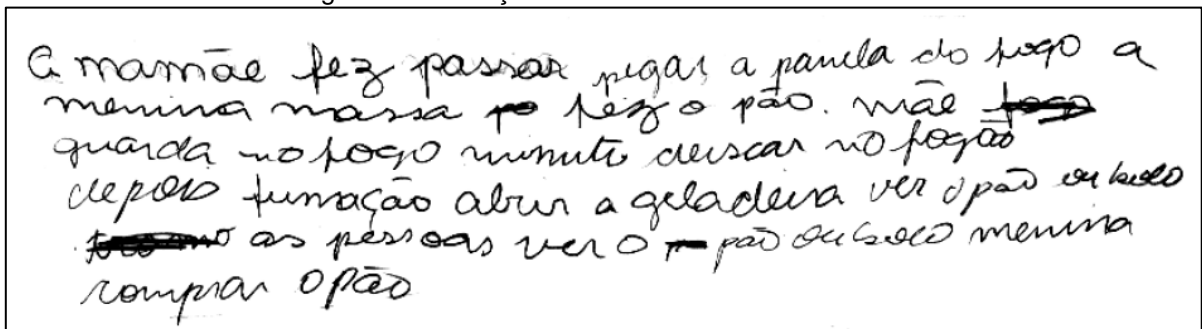 A mamãe fez passar pegar a panela do fogo a
menina massa fez o pão. mãe
guarda no fogo minuto deiscar no fogão
depois fumação abrir a geladeira ver o pão ou bolo
as pessoas ver o pão ou bolo menina
comprar o pão